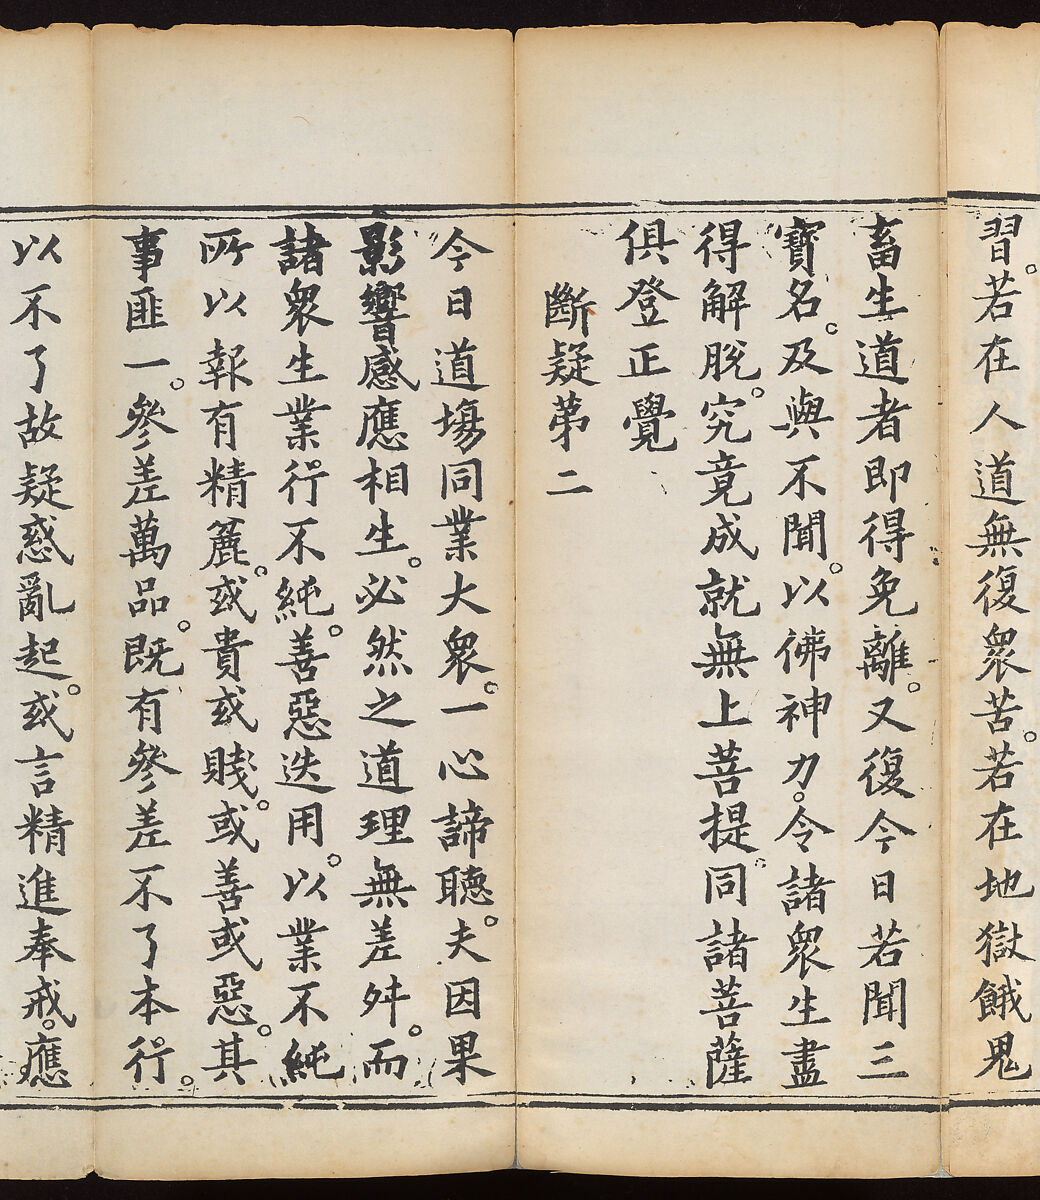 習。若在人道無復衆苦。若在地獄餓鬼
畜生道者即得免離。又復今日若聞三
寶名。及與不聞。以佛神力。令諸衆生盡
得解脫。究竟成就無上菩提。同諸菩薩
俱登正覺
斷疑第二
今日道塲同業大衆。一心諦聽。夫因果
影響感應相生。必然之道理無差舛。而
諸衆生業行不純。善惡迭用。以業不純
所以報有精麄。或貴或賤。或善或惡。其
事匪一。參差萬品。既有參差不了本行。
以不了故疑惑亂起。或言精進奉戒。應